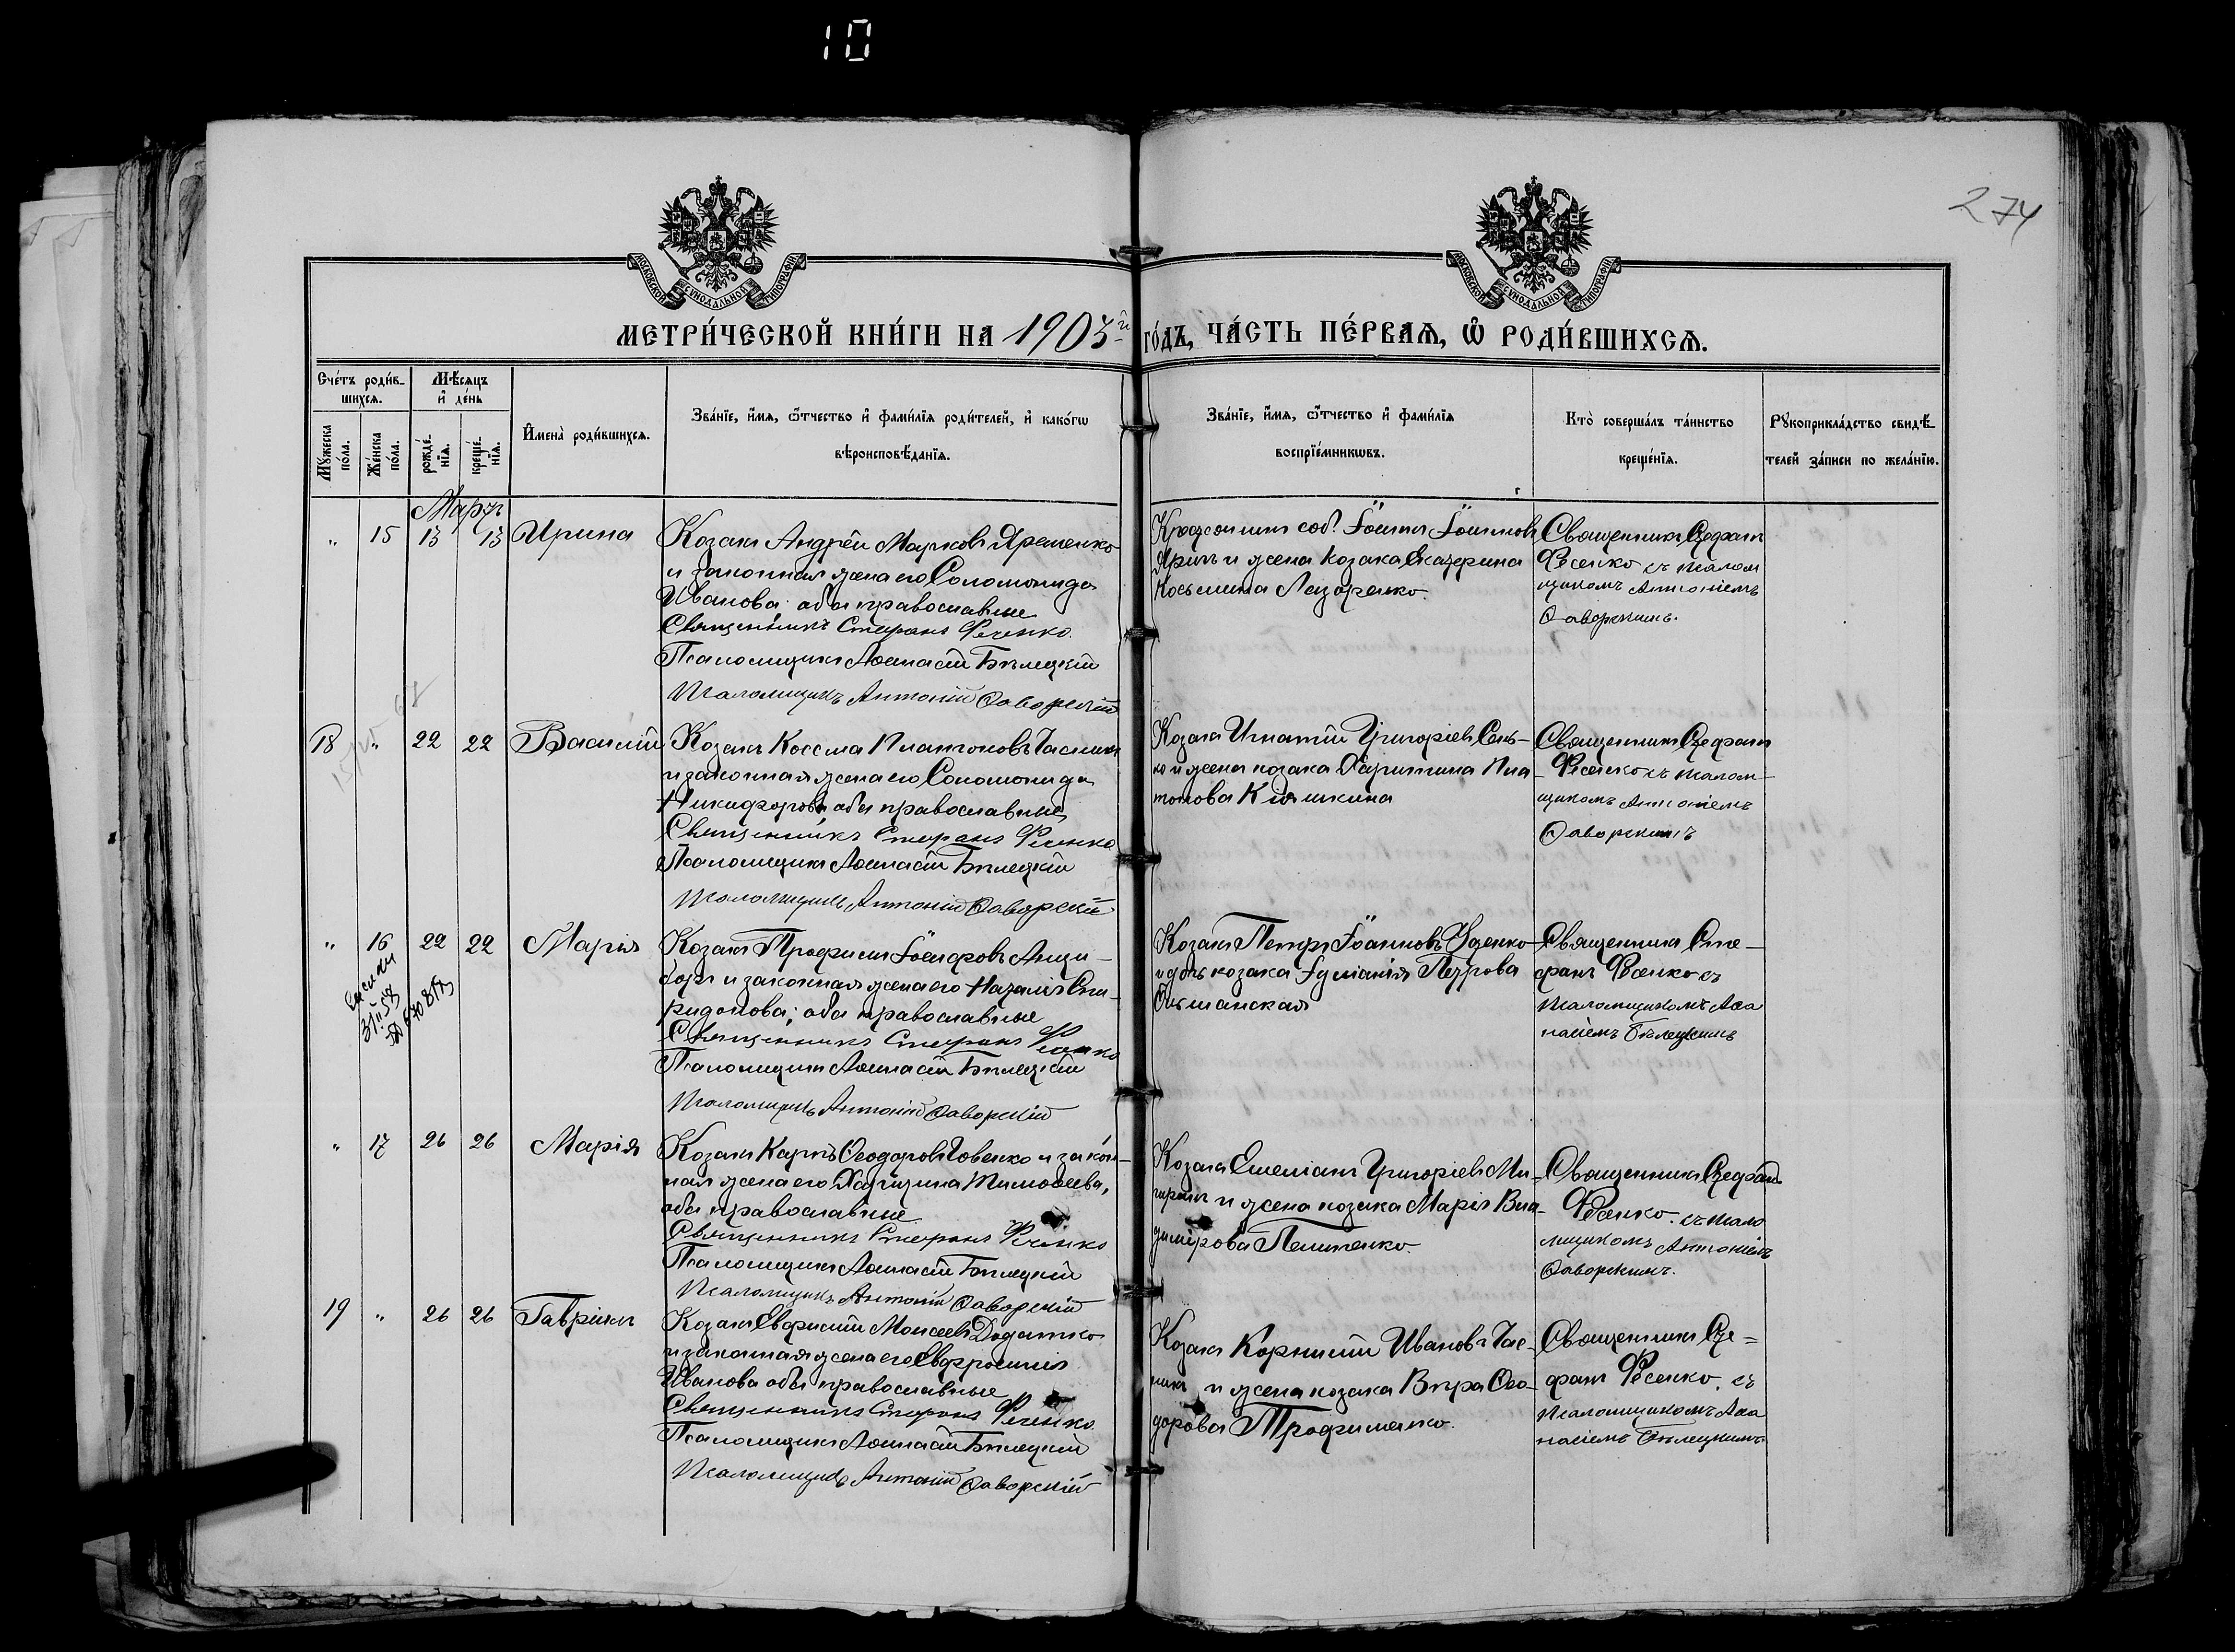 10
274
МОСКОВСКОЙ СѴНОДАЛЬНОЙ ТИПОГРАФІИ
МОСКОВСКОЙ СѴНОДАЛЬНОЙ ТИПОГРАФІИ
МЕТРИ́ЧЕСКОЙ КНИ́ГИ НА 1903й ГО́ДЪ, ЧА́СТЬ ПЕ́РВАѦ, Ѡ РОДИ́ВШИХСѦ.
Сче́тъ роди́в-
шихсѧ.
Мѣ́сѧцъ
и҆ де́нь
Мꙋ́жеска
по́ла.
Же́нска
по́ла.
рожде́-
нїѧ.
креще́-
нїѧ.
И҆мена̀ роди́вшихсѧ.
Зва́нїе, и҆́мѧ, ѻ҆́тчество и҆ фами́лїѧ роди́телей, и҆ како́гѡ
вѣроисповѣ́данїѧ.
Зва́нїе, и҆́мѧ, ѻ҆́тчество и҆ фами́лїѧ
воспрїе́мникѡвъ.
Кто̀ соверша́лъ та́инство
креще́нїѧ.
Рꙋкоприкла́дство свидѣ́-
телей за́писи по жела́нїю.
Мартъ
" 15 13 13 Ирина
Козакъ Андрей Марковъ Яременко
и законная жена его Соломонида
Иванова; оба православные
Священникъ Стефанъ Фесенко.
Псаломщикъ Аѳанасій Бѣлецкій
Псаломщикъ Антоній Заворскій
соб. Іоаннъ Іоанновъ
и жена козака Екатерина
Косьмина Лазоренко.
Священникъ Стефанъ
Фесенко съ псалом
щикомъ Антоніемъ
Заворскимъ.
18 " 22 22 Василій
Козакъ Косма Платоновъ Часникъ
и законная жена его Соломонида
Никифорова, оба православные
Священникъ Стефанъ Фесенко
Псаломщикъ Аѳанасій Бѣлецкій
Псаломщикъ Антоній Заворскій
Козакъ Игнатій Григоріевъ Сень-
ко и жена козака Харитина Пла-
тонова Кияшкина
Священникъ Стефанъ
Фесенко съ псалом-
щикомъ Антоніемъ
Заворскимъ
" 16 22 22 Марія
Козакъ Трофимъ Іосифовъ Анци-
боръ и законная жена его Наталія Спи-
ридонова; оба православные
Священникъ Стефанъ Фесенко
Псаломщикъ Аѳанасій Бѣлецкій
Псаломщикъ Антоній Заворскій
Козакъ Петръ Іоанновъ Уценко
и дочь козака Іуліанія Петрова
Ольшанская
Священникъ Сте-
фанъ Фесенко съ
псаломщикомъ Аѳа
насіемъ Бѣлецкимъ
" 17 26 26 Марія
Козакъ Карпъ Ѳеодоровъ Човенко и закон-
ная жена его Харитина Тимоѳеева,
оба православные.
Священникъ Стефанъ Фесенко
Псаломщикъ Аѳанасій Бѣлецкій
Псаломщикъ Антоній Заворскій
Козакъ Емеліанъ Григоріевъ Ми-
и жена козака Марія Вла-
димірова Пелипенко.
Священникъ Стефанъ
Фесенко. съ псало
мщикомъ Антоніемъ
Заворскимъ.
19 " 26 26 Гавріилъ
Козакъ Евфимій Моисеевъ Додатко
и законная жена его Евфросинія
Иванова оба православные
Священникъ Стефанъ Фесенко.
Псаломщикъ Аѳанасій Бѣлецкій
Псаломщикъ Антоній Заворскій
Козакъ Корнилій Ивановъ Час-
никъ и жена козака Вѣра Ѳео-
дорова Трофименко.
Священникъ Сте-
фанъ Фесенко. съ
псаломщикомъ Аѳа
насіемъ Бѣлецкимъ